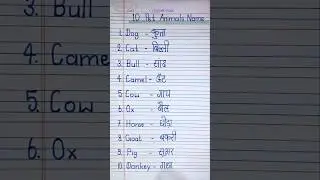 10 Pet Animals Name
1. Dog - कुत्ता
2. Cat - बिल्ली
3. Bull - सांड
4. Camel - ऊँट
5. Cow - गाय
6. Ox - बैल
7. Horse - घोड़ा
8. Goat - बकरी
9. Pig - सूअर
10. Donkey - गधा